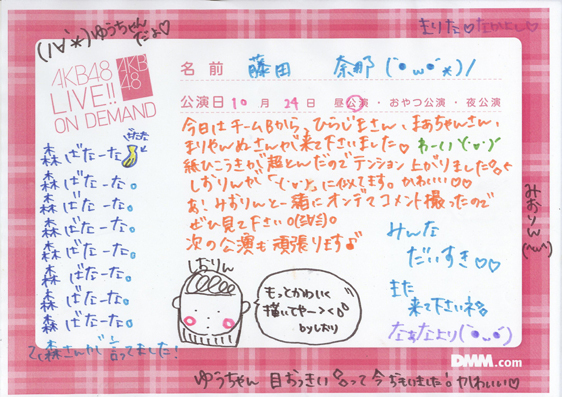 (*'∀'*)ゆうちゃんだよ♡
きりた♡なかよし♡
AKB48
LIVE!!
ON DEMAND
AKB
48
名前 藤田 奈那(´・ω・`*)/
公演日 10月24日 昼公演・おやつ公演・夜公演
今日はチームBから、ひらじまさん、まあちゃんさん、
まりやんぬさんが来て下さいました♡ わーい('∀')
紙ひこうきが超とんだのでテンション上がりました。
しおりんが「('∀')」に似てます。かわいい♡♡
あ!みおりんと一緒にオンデマコメント撮ったので
ぜひ見て下さい
次の公演も頑張ります♪
ばたた
森ばたーな
森ばたーな。
森ばたーな。
森ばたーな。
森ばたーな。
森ばたーな。
森ばたーな。
森ばたーな。
って森さんが言ってました!
しおりん
もっとかわいく
描いてやー><
byしおり
みんな
だいすき♡♡
また
来て下さいね
なぁなより(・ω・)
みおりん
DMM.com
ゆうちゃん 目おっきい